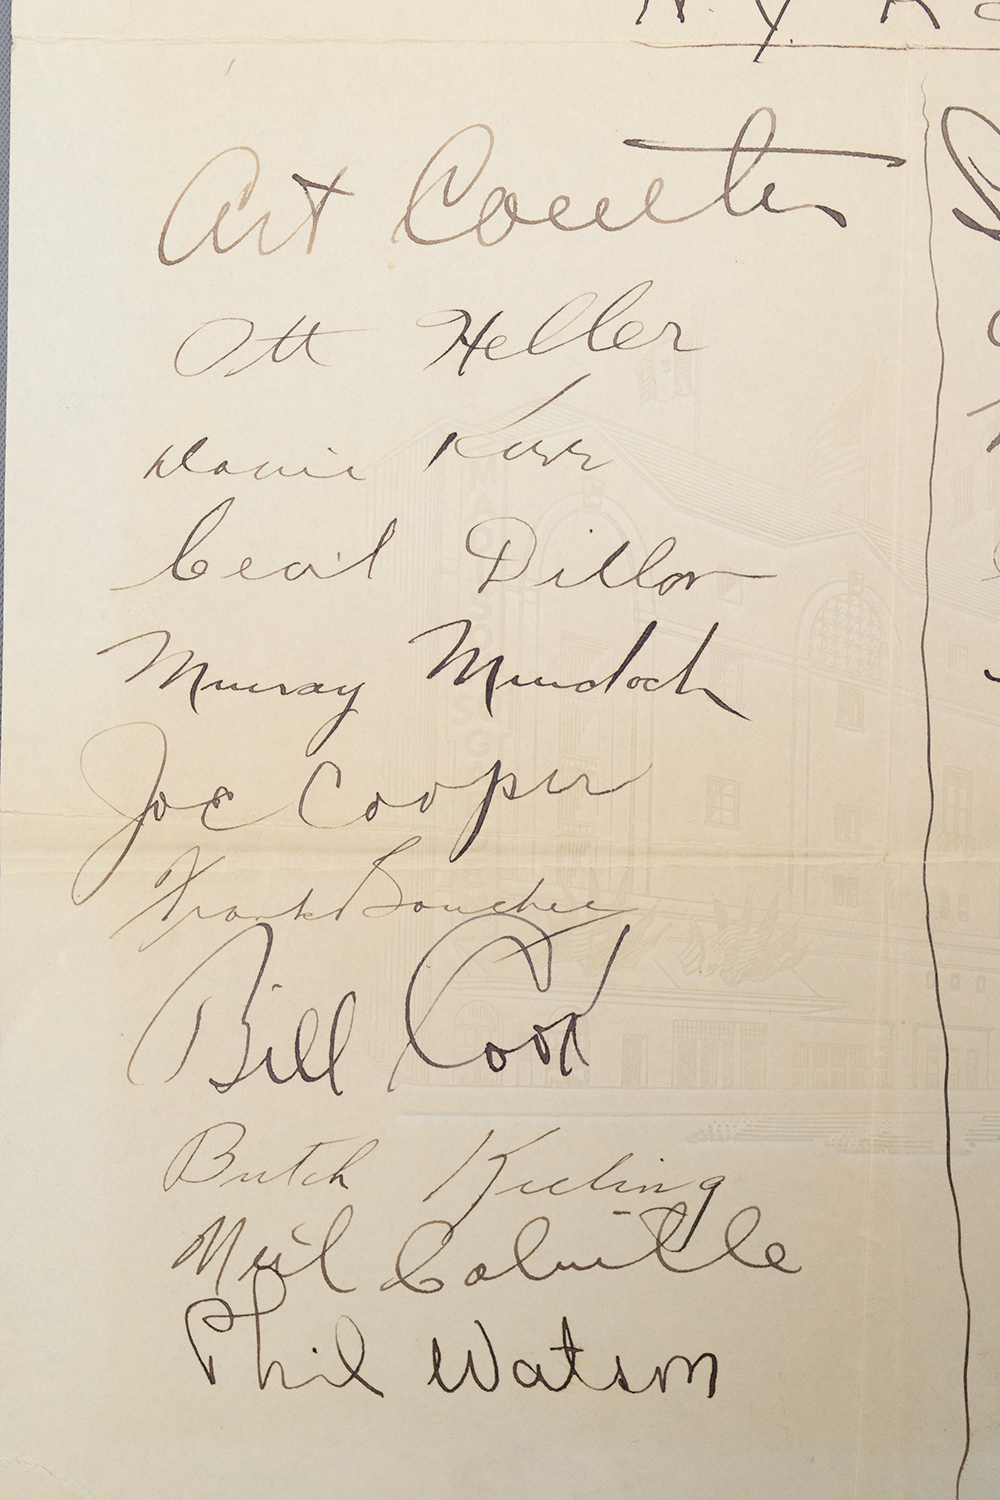 N.Y. Ra
Art Coulter
Ott Heller
Davie Kerr
Cecil Dillon
Murray Murdoch
Joe Cooper
Frank Boucher
Bill Cook
Butch Keeling
Neil Colville
Phil Watson